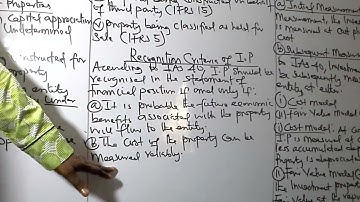 Properties
Capital appreciation
Undetermined
instructed for
property
entity
under
of third party (IFRS 15)
Property being classified as held for
Sale (IFRS 5)
Recognition Criteria of I.P
According to IAS 40, I.P should be
recognised in the statement of
financial position if and only if:
(a) It is probable the future economic
benefits associated with the property
will flow to the entity.
(b) The cost of the property can be
measured reliably.
(a) Initial Measurement
measurement, the Inve
is measured at cost p
cost
(b) Subsequent Measure
to IAS 40, Invest
be subsequently meas
entity st either
(i) Cost model
(ii) Fair Value Model
(i) Cost model: At Cos
I.P is measured at cos
less accumulated dep
property is depreciated
(ii) Fair Value Model
the Investment prop
Fair Value at the repo